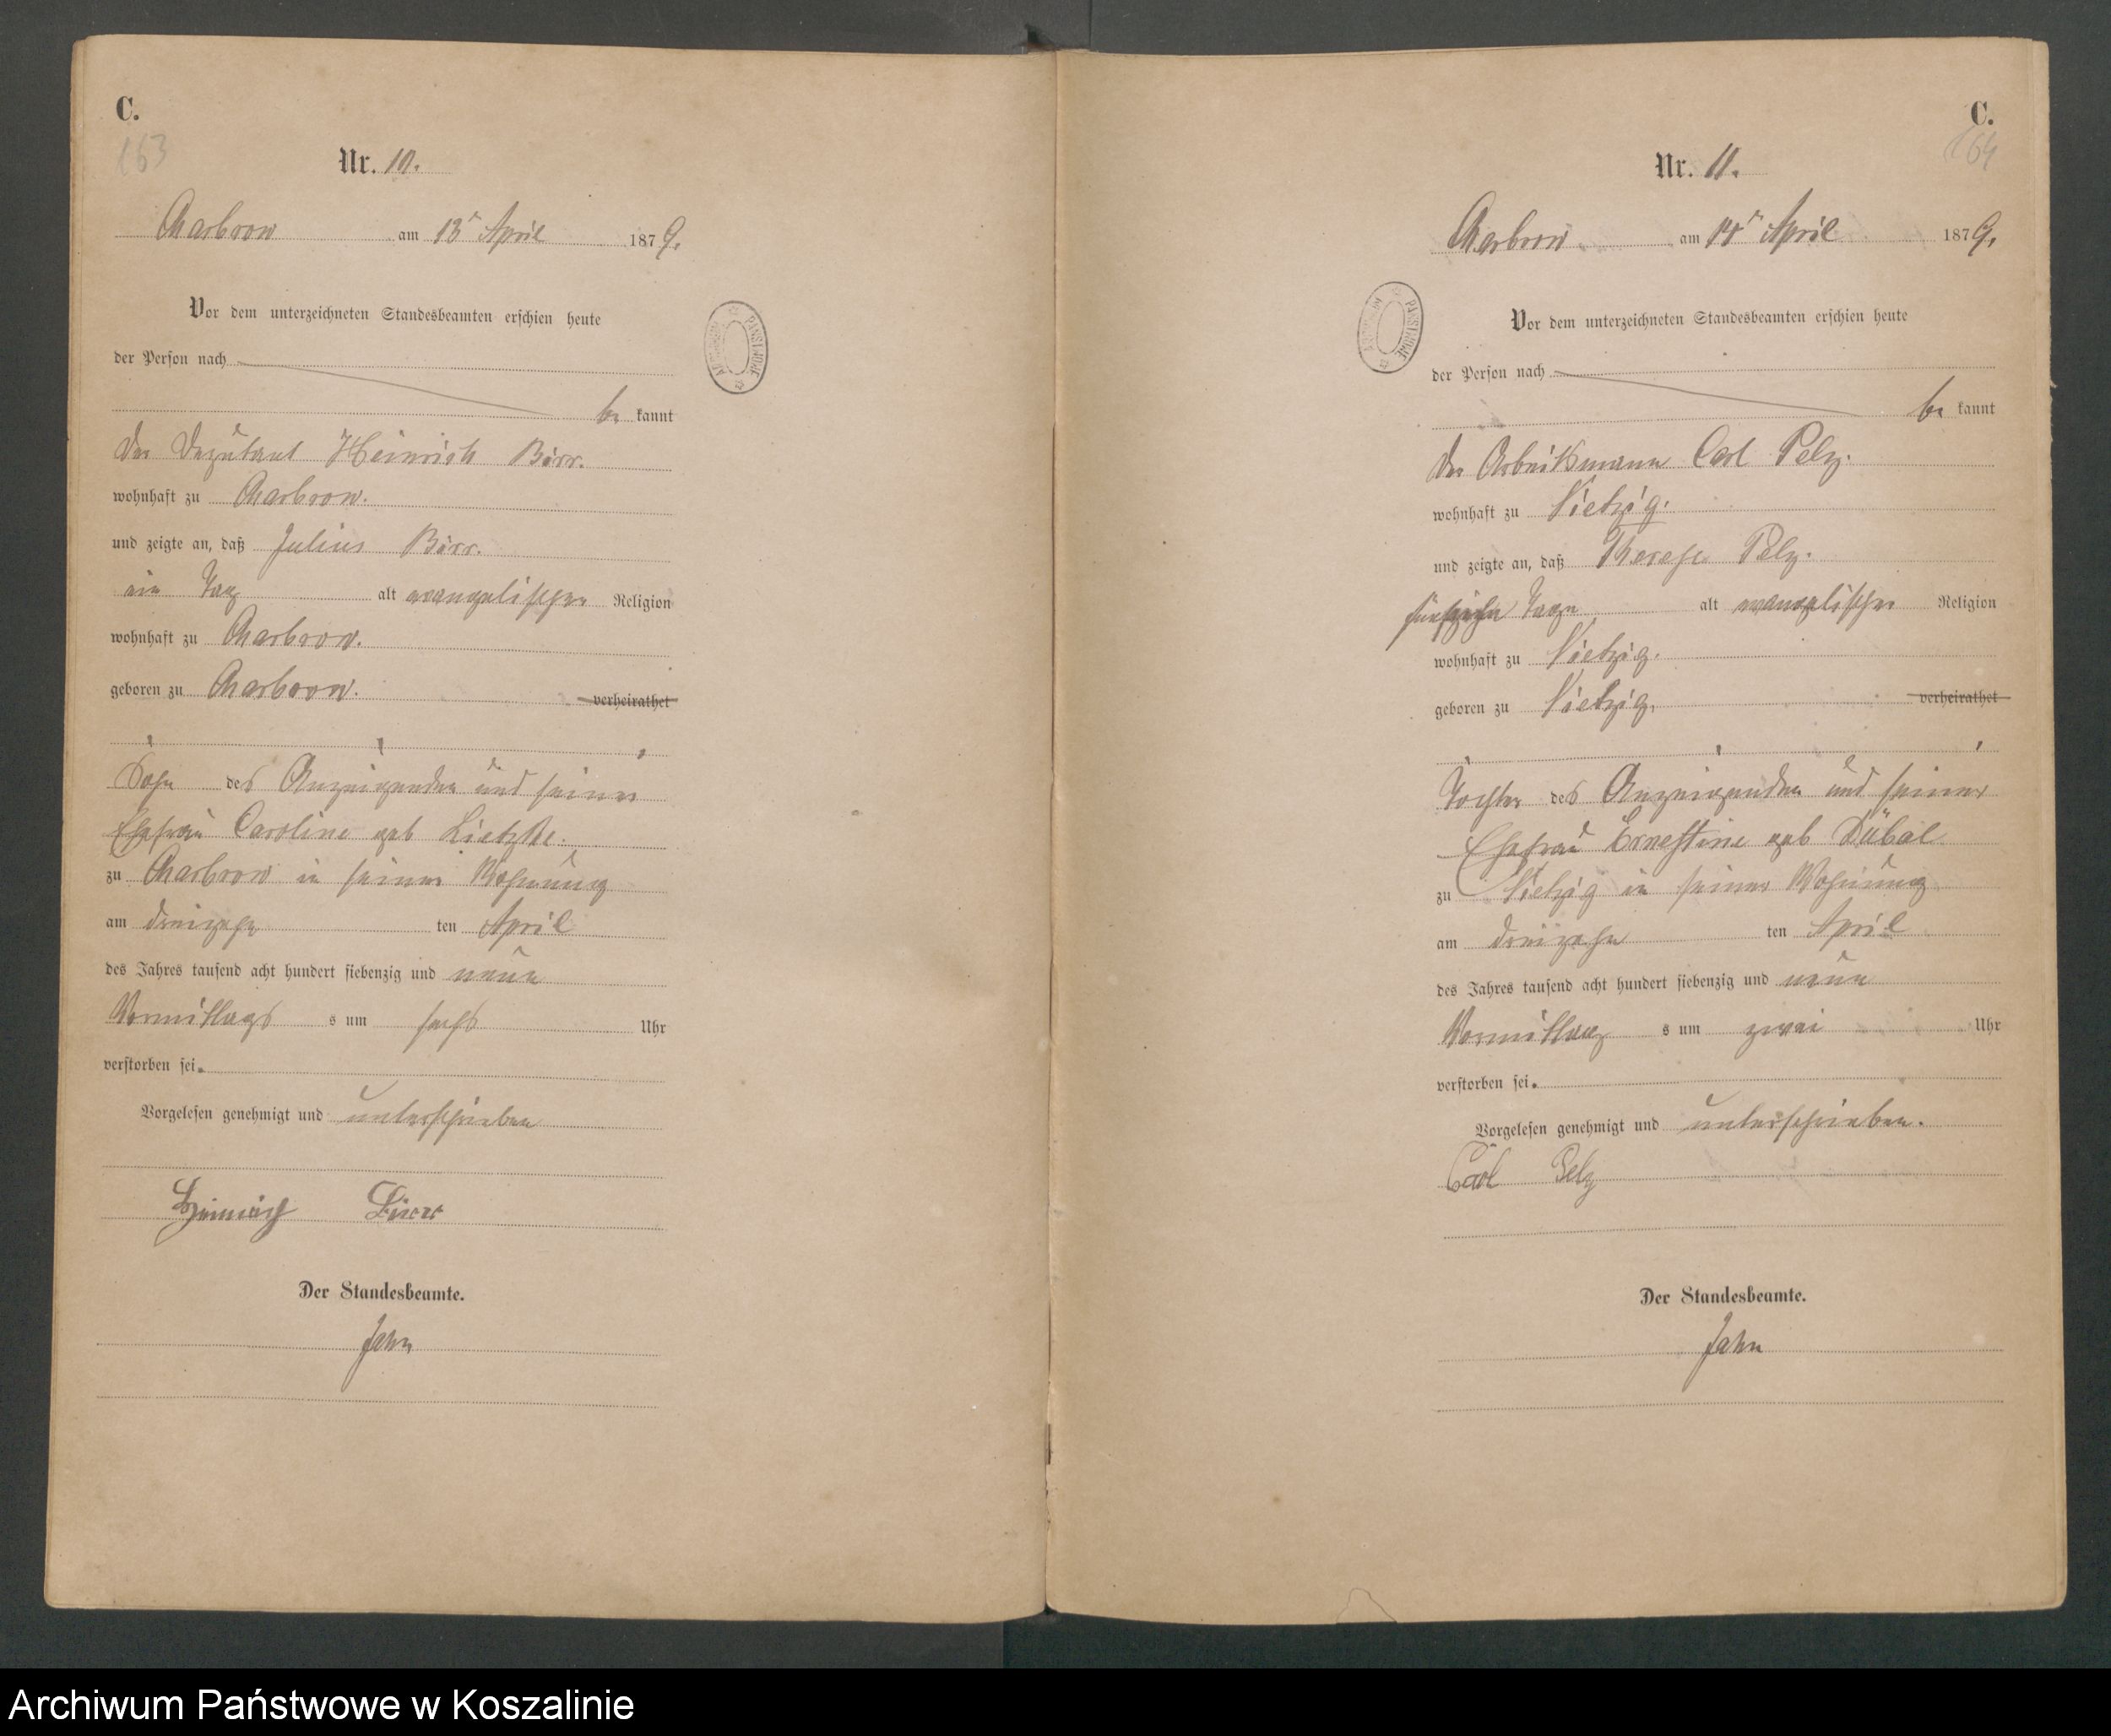 C.
163
Nr. 10.
Charbrow am 13ᵗ April 1879.
Vor dem unterzeichneten Standesbeamten erschien heute
der Person nach
be kannt
Der Deputant Heinrich Birr.
wohnhaft zu Charbrow.
und zeigte an, daß Julius Birr.
ein Tag alt evangelischer Religion
wohnhaft zu Charbrow.
geboren zu Charbrow. verheirathet
Sohn des Anzeigenden und seiner
Ehefrau Caroline geb Lietzke.
zu Charbrow in seiner Wohnung
am dreizehn ten April
des Jahres tausend acht hundert siebenzig und neun
Vormittags s um sechs Uhr
verstorben sei.
Vorgelesen genehmigt und unterschrieben
Heinrich Birr
Der Standesbeamte.
Jahn
C.
164
Nr. 11.
Charbrow am 14ᵗ April 1879.
Vor dem unterzeichneten Standesbeamten erschien heute
der Person nach
be kannt
Der Arbeitsmann Carl Pelz.
wohnhaft zu Vietzig.
und zeigte an, daß Therese Pelz.
fünfzehn Tage alt evangelischer Religion
wohnhaft zu Vietzig.
geboren zu Vietzig. verheirathet
Tochter des Anzeigenden und seiner
Ehefrau Ernestine geb Dübal
zu Vietzig in seiner Wohnung
am dreizehn ten April
des Jahres tausend acht hundert siebenzig und neun
Vormittag s um zwei Uhr
verstorben sei.
Vorgelesen genehmigt und unterschrieben.
Carl Pelz
Der Standesbeamte.
Jahn
Archiwum Państwowe w Koszalinie